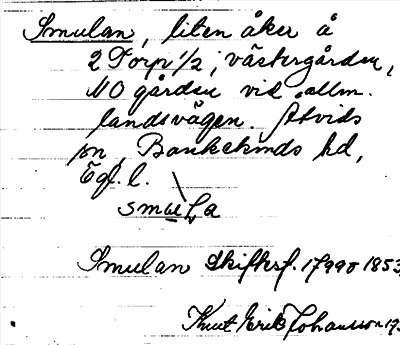 Smulan, liten åker å
2 Torp 1/2, västergården,
NO gården vid allm.
landsvägen. Åtvids
sn, Bankekinds hd,
Ögl. l.
Smulan Skiftesf. 1799 o 1853,
Knut Erik Johansson 19